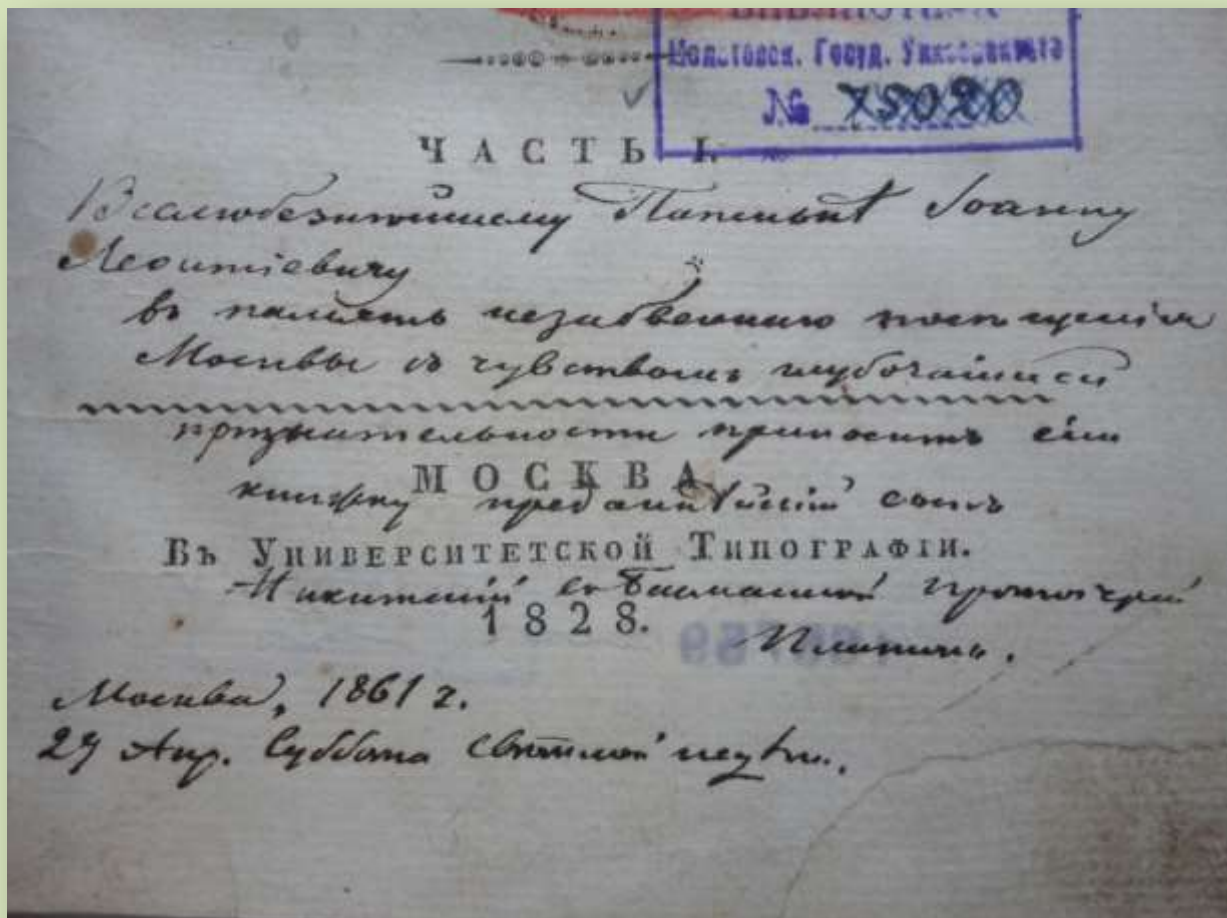 БИБЛИОТЕКА
Госуд. Университета
№ 75020
ЧАСТЬ I.
Вселюбезнѣйшему Папенькѣ Іоанну
Леонтіевичу
въ память незабвеннаго посѣщенія
Москвы съ чувствомъ глубочайшей
признательности приноситъ сію
МОСКВА.
книжку преданнѣйшій сынъ
Въ Университетской Типографіи.
въ Басманной Протоіерей
1828.
Москва, 1861 г.
29 Апр. Суббота Свѣтлой недѣли.